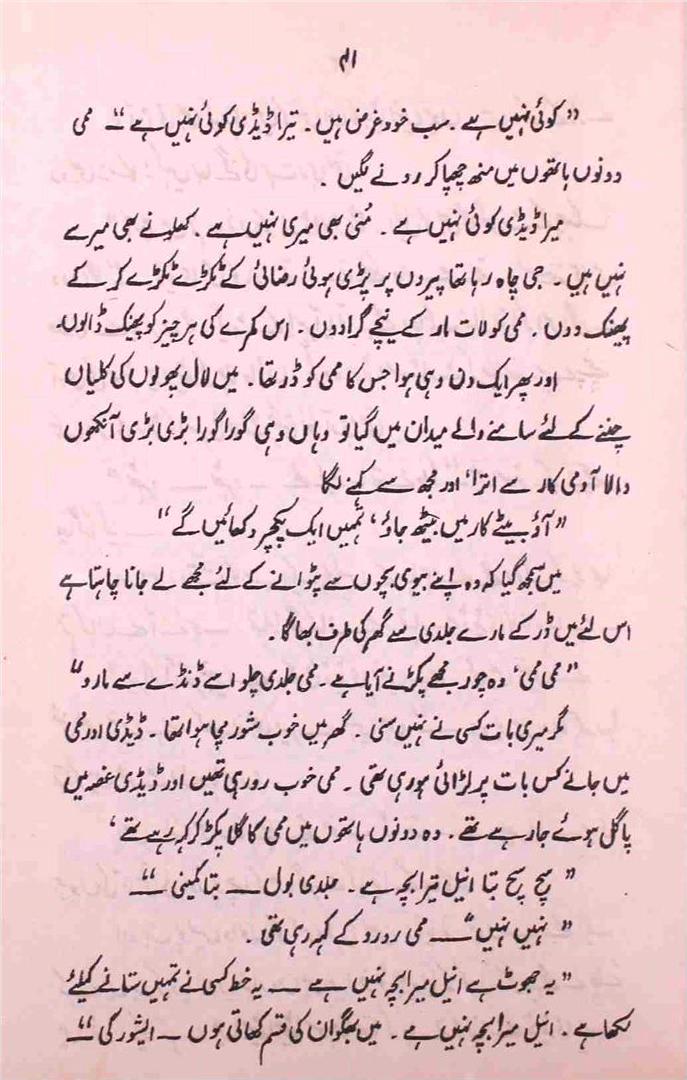 ۴۱
”کوئی نہیں ہے ۔ سب خود غرض ہیں ۔ تیرا ڈیڈی کوئی نہیں ہے“ — ممی
دونوں ہاتھوں میں منھ چھپا کر رونے لگیں ۔
میرا ڈیڈی کوئی نہیں ہے ۔ مُنی بھی میری نہیں ہے ۔ کھلونے بھی میرے
نہیں ہیں ۔ جی چاہ رہا تھا پیروں پر پڑی ہوئی رضائی کے ٹکڑے ٹکڑے کر کے
پھینک دوں ۔ ممی کو لات مار کے نیچے گرا دوں ۔ اس کمرے کی ہر چیز کو پھینک ڈالوں ۔
اور پھر ایک دن وہی ہوا جس کا ممی کو ڈر تھا ۔ میں لال پھولوں کی کلیاں
چننے کے لئے سامنے والے میدان میں گیا تو وہاں وہی گورا گورا بڑی بڑی آنکھوں
والا آدمی کار سے اترا، اور مجھ سے کہنے لگا
”آؤ بیٹے کار میں بیٹھ جاؤ، تمہیں ایک پکچر دکھائیں گے“
میں سمجھ گیا کہ وہ اپنے بیوی بچوں سے پٹوانے کے لئے مجھے لے جانا چاہتا ہے
اس لئے میں ڈر کے مارے جلدی سے گھر کی طرف بھاگا ۔
”ممی ممی، وہ چور مجھے پکڑنے آیا ہے ۔ ممی جلدی چلو اسے ڈنڈے سے مارو“
مگر میری بات کسی نے نہیں سنی ۔ گھر میں خوب شور مچا ہوا تھا ۔ ڈیڈی اور ممی
میں جانے کس بات پر لڑائی ہو رہی تھی ۔ ممی خوب رو رہی تھیں اور ڈیڈی غصہ میں
پاگل ہوئے جا رہے تھے ۔ وہ دونوں ہاتھوں میں ممی کا گلا پکڑ کر کہہ رہے تھے،
”سچ سچ بتا انیل تیرا بچہ ہے ۔ جلدی بول — بتا کمینی —“
”نہیں نہیں“ — ممی رو رو کے کہہ رہی تھی ۔
”یہ جھوٹ ہے انیل میرا بچہ نہیں ہے — یہ خط کسی نے تمہیں ستانے کیلئے
لکھا ہے ۔ انیل میرا بچہ نہیں ہے ۔ میں بھگوان کی قسم کھاتی ہوں — ایشور کی —“